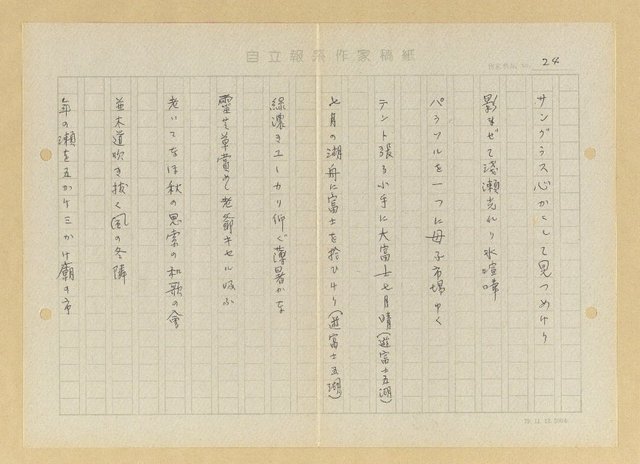 自立報系作家稿紙
24
サングラス心かくして見つめけり
影まぜて浅瀬光れり水喧嘩
パラソルを一つに母子市場ゆく
テント張る小手に大富士七月晴(遊富士五湖)
七月の湖舟に富士を拾ひけり(遊富士五湖)
緑濃きユーカリ仰ぐ薄暑かな
霊芝草賞めて老爺キセル吸ふ
老いてなほ秋の思索の和歌の会
並木道吹き抜く風の冬隣
年の瀬を五かけ三かけ廟の市
79. 11. 12. 200本